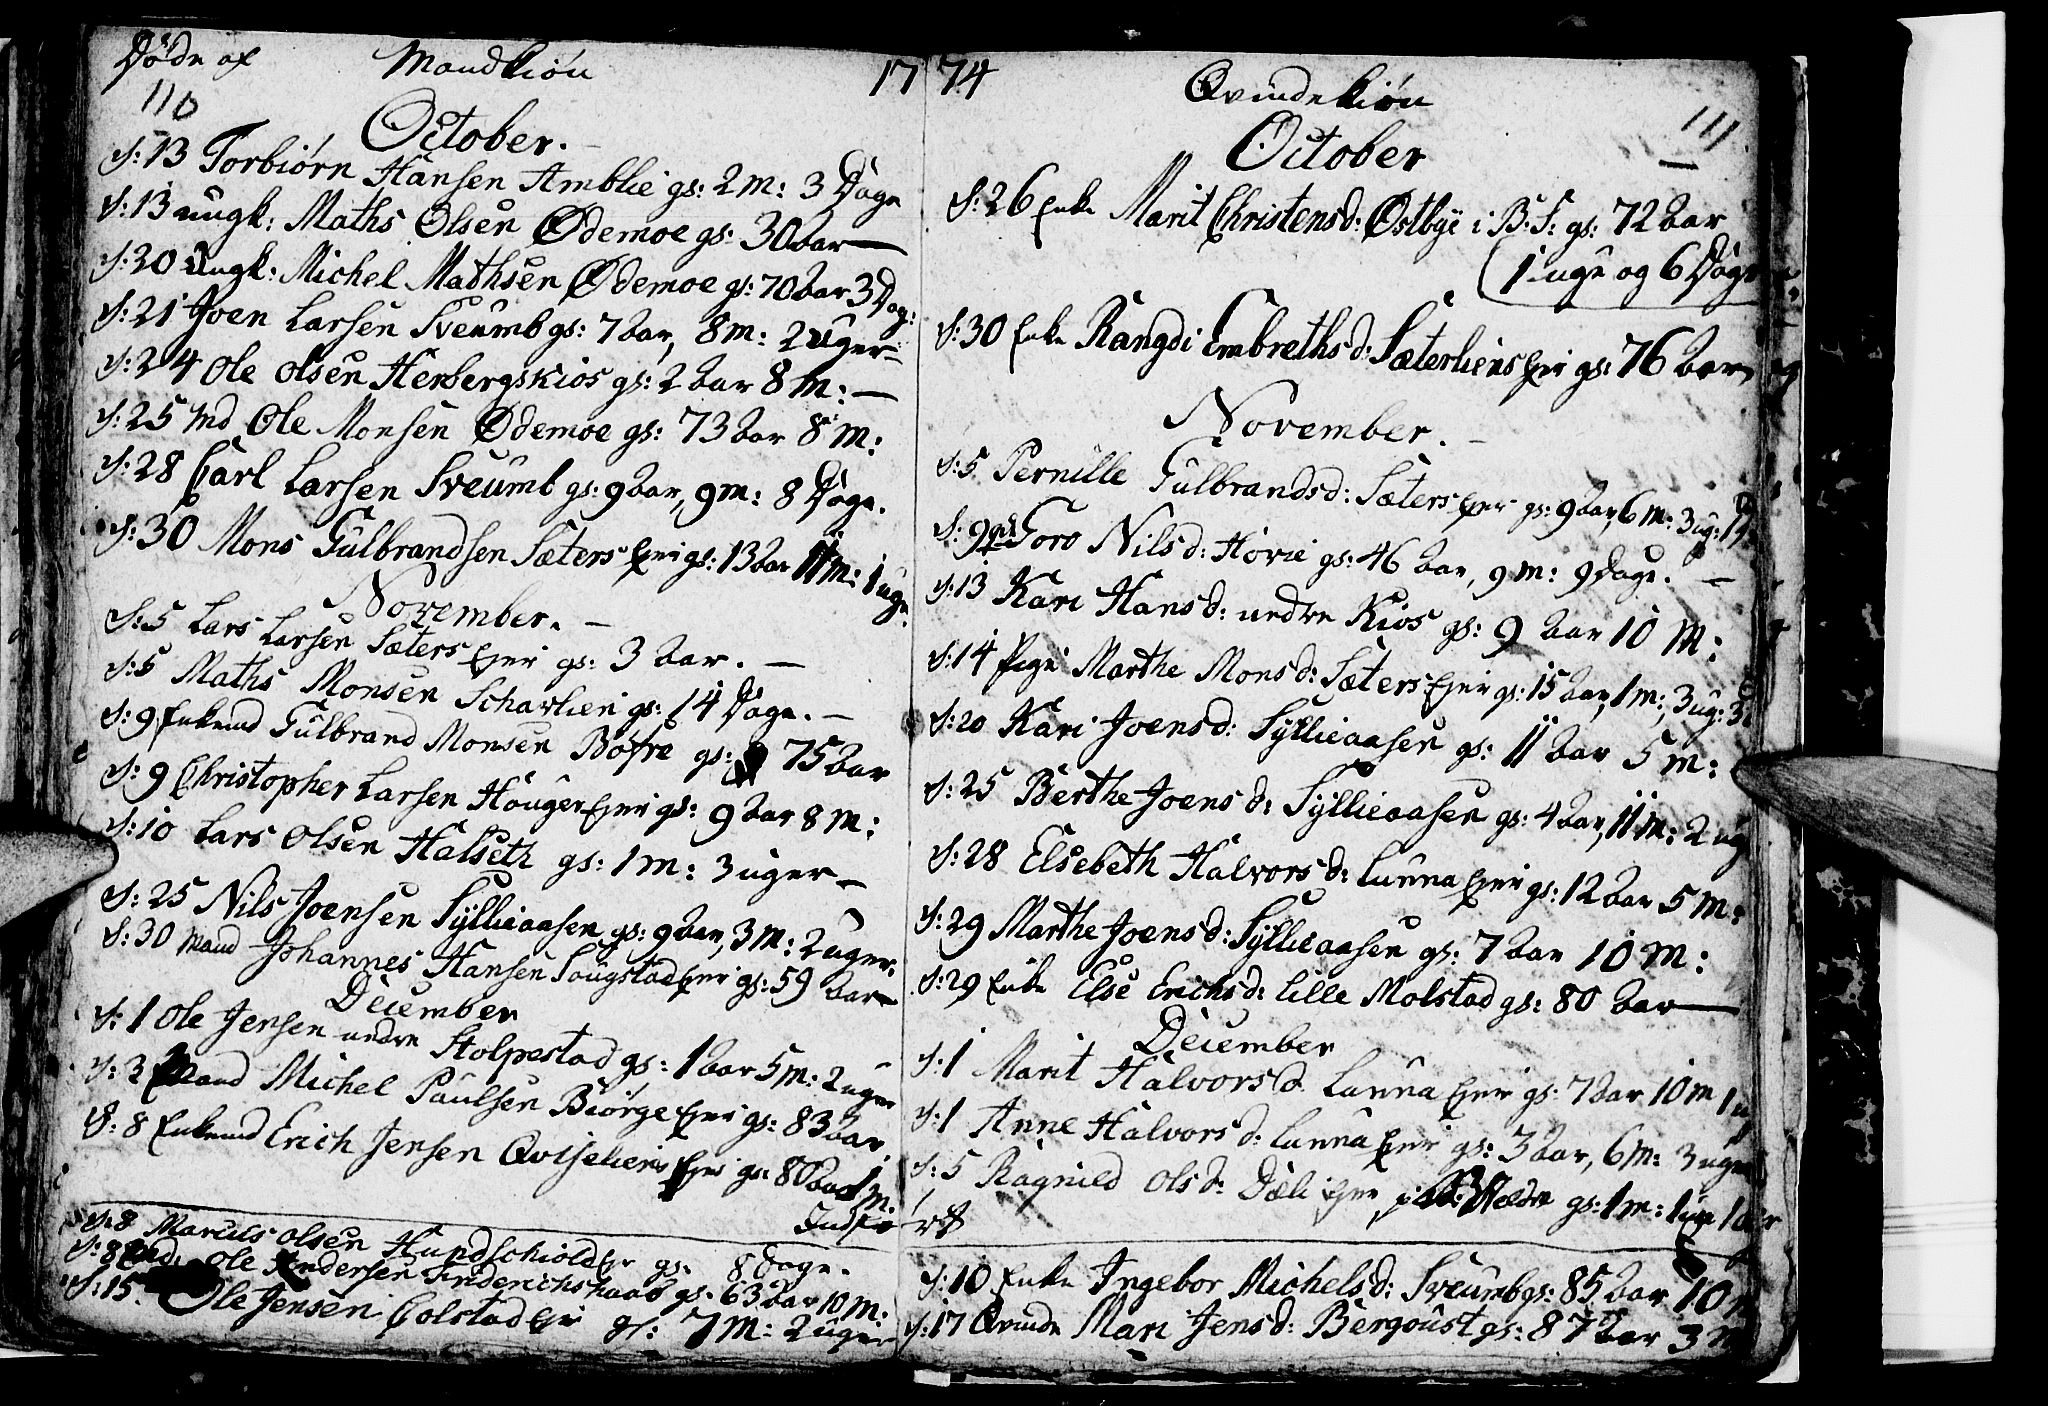 Døde af Mandkiøn 17
110
October.
d: 13 Torbiørn Hansen Amblie gs: 2 m: 3 Dage
d: 13 ungk: Maths Olsen Ødemoe gs: 30 aar
d: 20 ungk: Michel Mathsen Ødemoe gs: 70 aar 3 Dag:
d: 21 Joen Larsen Sveumb gs: 7 aar, 8 m: 2 uger
d: 24 Ole Olsen Herbergskios gs: 2 aar 8 M:
d: 25 Md Ole Monsen Ødemoe gs: 73 aar 8 M:
d: 28 Carl Larsen Sveumb gs: 9 aar, 9 m: 8 Dage.
d: 30 Mons Gulbrandsen Sæters Ejer gs: 13 aar 11 m: 1 uge.
November.
d: 5 Lars Larsen Sæters Ejer gs: 3 aar.
d: 5 Maths Monsen Scharlien gs: 14 Dage.
d: 9 Enkemd Gulbrand Monsen Bøfre gs: 75 aar
d: 9 Christopher Larsen Houger Ejer gs: 9 aar 8 M:
d: 10 Lars Olsen Halseth gs: 1 m: 3 uger
d: 25 Nils Joensen Syllieaasen gs: 9 aar, 3 M: 2 uger.
d: 30 Mand Johannes Hansen Sougstad Ejer gs: 59 aar
December
d: 1 Ole Jensen nedre Stolpestad gs: 1 aar 5 m: 2 uger
d: 3 Mand Michel Paulsen Biørge Ejer gs: 83 aar.
d: 8 Enkemd Erich Jensen Qvisliens Ejer gs: 80 aar 1 M.
d: 8 Marcus Olsen Hundschiold Ejer gs: 8 Dage.
d: 8 Ole Andersen Friderichshaab gs: 63 aar 10 M:
d: 15 Ole Jensen Colstad Ejer gs: 7 M: 2 uger
74 Qvindekiøn
111
October
d: 26 Enke Marit Christensd: Østbye i B: S: gs: 72 aar
(1 uge og 6 Dage
d: 30 Enke Rangdi Embrethsd: Sæterliens Ejer gs: 76 aar
November.
d: 5 Pernille Gulbrandsd: Sæters Ejer gs: 9 aar, 6 M: 3 ug: 1
d: 9 Goro Nilsd: Hovie gs: 46 aar, 9 m: 9 Dage.
d: 13 Kari Hansd: nedre Kios gs: 9 aar 10 M:
d: 14 Pige Marthe Monsd: Sæters Ejer gs: 15 aar, 1 m:, 3 ug: 3
d: 20 Kari Joensd: Syllieaasen gs: 11 aar 5 M:
d: 25 Berthe Joensd: Syllieaasen gs: 4 aar, 11 M: 2 ug
d: 28 Elsebeth Halvorsd: Lunna Ejer gs: 12 aar 5 M:
d: 29 Marthe Joensd: Syllieaasen gs: 7 aar 10 M:
d: 29 Enke Else Erichsd: Lille Molstad gs: 80 aar
December
d: 1 Marit Halvorsd. Lunna Ejer gs: 7 aar 10 m 1 u
d: 1 Anne Halvorsd: Lunna Ejer gs: 3 aar, 6 M: 3 uger
d: 5 Ragnild Olsd: Dæli Ejer gs: 1 m: 1 uge
d: 10 Enke Ingebor Michelsd: Sveumb gs: 85 aar 10
d: 17 Qvinde Mari Jensd: Bergoust gs: 87 aar 3 M